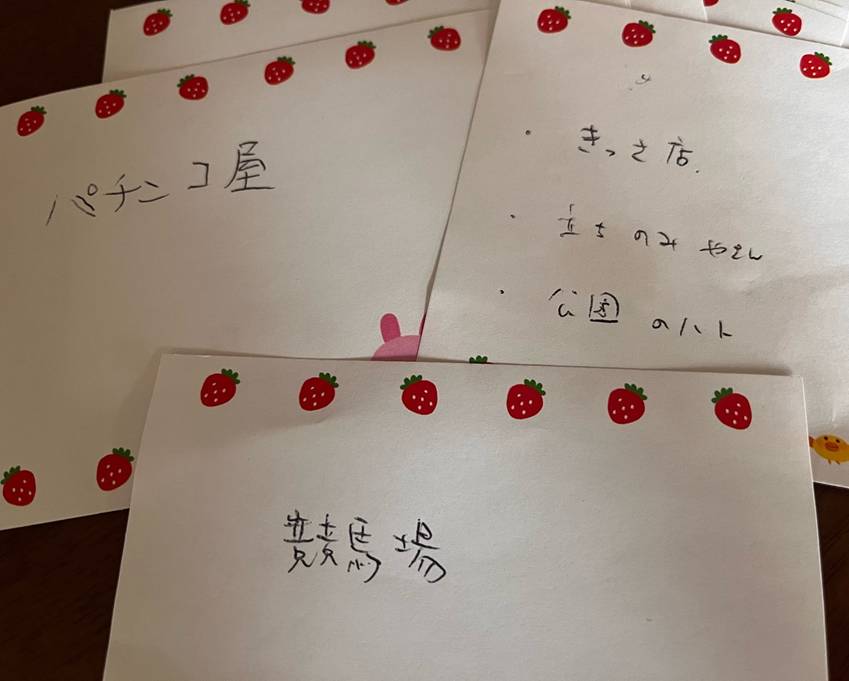 パチンコ屋
・きっさ店.
・立ちのみやさん
・公園のハト
競馬場